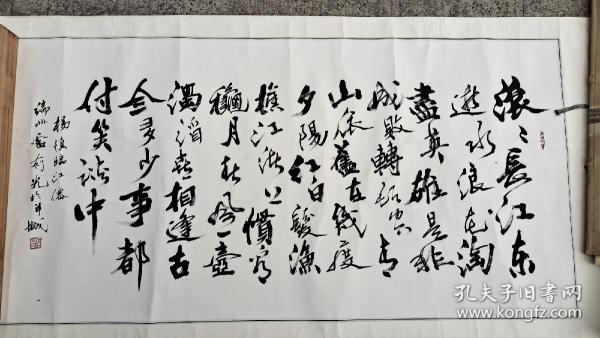 滚〻長江东
逝水浪花淘
盡英雄是非
成败轉頭空青
山依舊在幾度
夕陽红白髮渔
樵江渚上慣看
龝月春风一壶
濁酒喜相逢古
今多少事都
付笑談中
楊慎臨江僊
孔夫子旧书网
www.kongfz.com